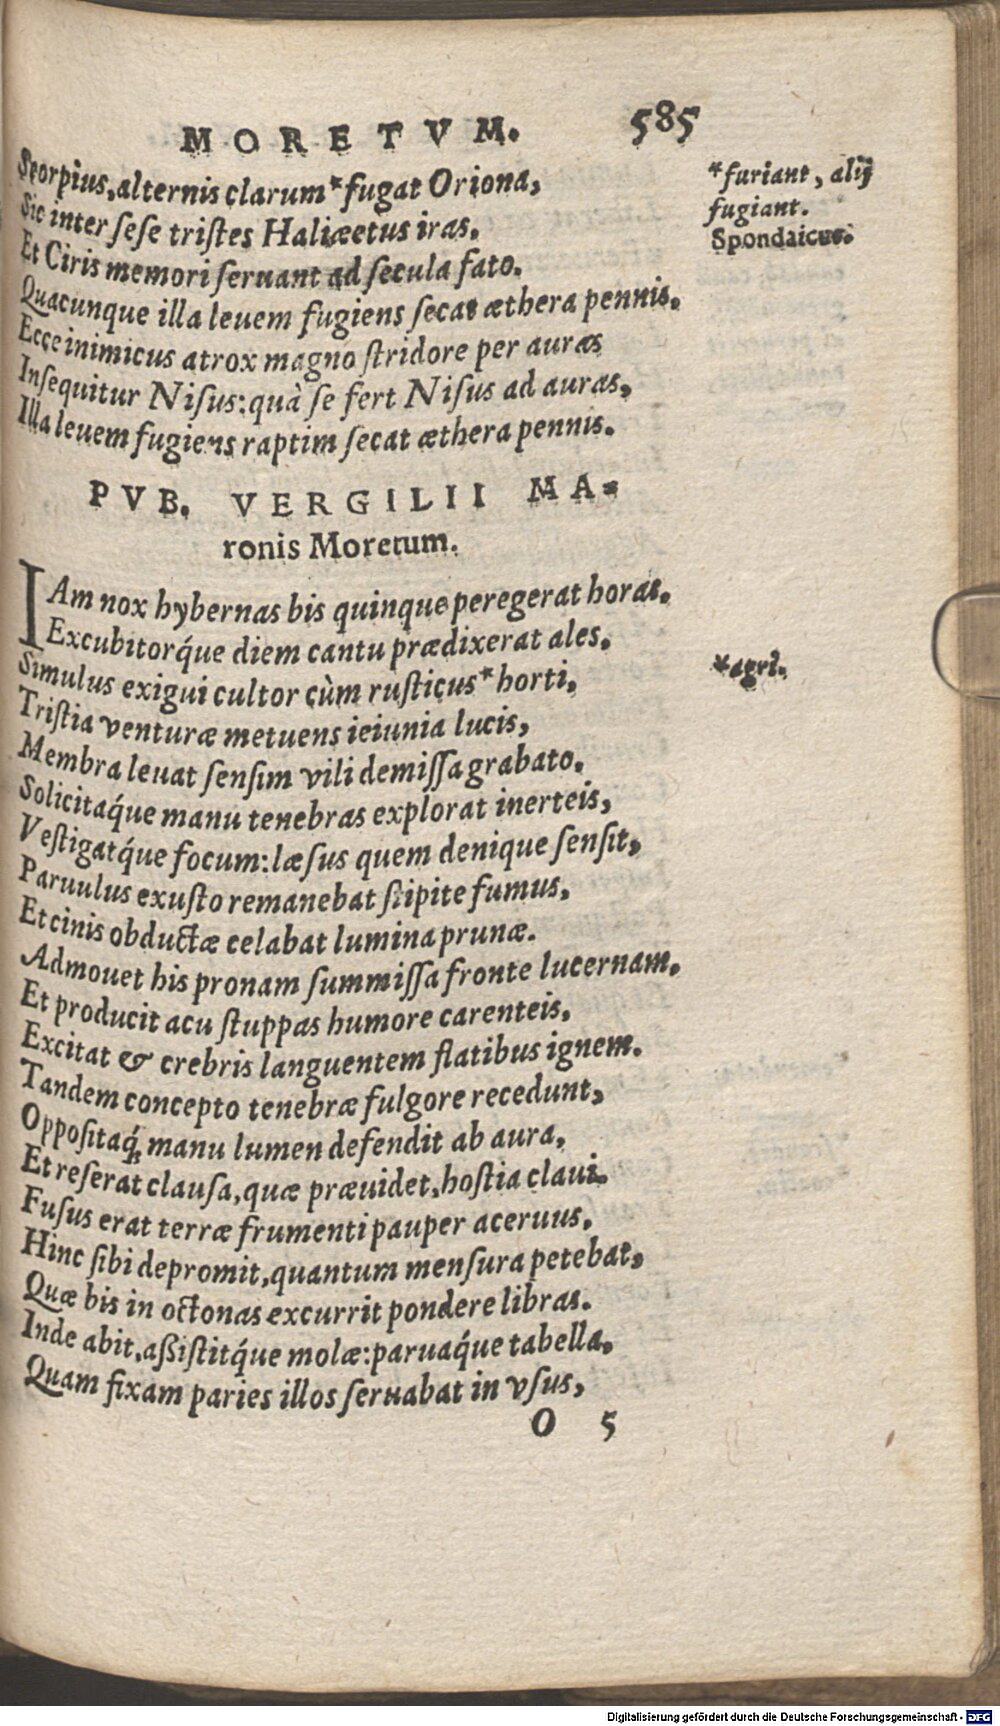 MORETVM. 585
Scorpius, alternis clarum * fugat Oriona,
Sic inter sese tristes Haliæetus iras.
Et Ciris memori seruant ad secula fato.
Quacunque illa leuem fugiens secat æthera pennis.
Ecce inimicus atrox magno stridore per auras
Insequitur Nisus: quà se fert Nisus ad auras,
Illa leuem fugiens raptim secat æthera pennis.
* furiant, alij
fugiant.
Spondaicus.
PVB. VERGILII MA-
ronis Moretum.
IAm nox hybernas bis quinque peregerat horas.
Excubitorq́ue diem cantu prædixerat ales.
Simulus exigui cultor cùm rusticus * horti,
* agri.
Tristia venturæ metuens ieiunia lucis,
Membra leuat sensim vili demissa grabato.
Solicitaq́ue manu tenebras explorat inerteis,
Vestigatq́ue focum: læsus quem denique sensit,
Paruulus exusto remanebat stipite fumus,
Et cinis obductæ celabat lumina prunæ.
Admouet his pronam summissa fronte lucernam.
Et producit acu stuppas humore carenteis.
Excitat & crebris languentem flatibus ignem.
Tandem concepto tenebræ fulgore recedunt,
Oppositaq́; manu lumen defendit ab aura,
Et reserat clausa, quæ præuidet, hostia claui.
Fusus erat terræ frumenti pauper aceruus.
Hinc sibi depromit, quantum mensura petebat,
Quæ bis in octonas excurrit pondere libras.
Inde abit, aßistitq́ue molæ: paruaq́ue tabella.
Quam fixam paries illos seruabat in vsus,
O 5
Digitalisierung gefördert durch die Deutsche Forschungsgemeinschaft - DFG